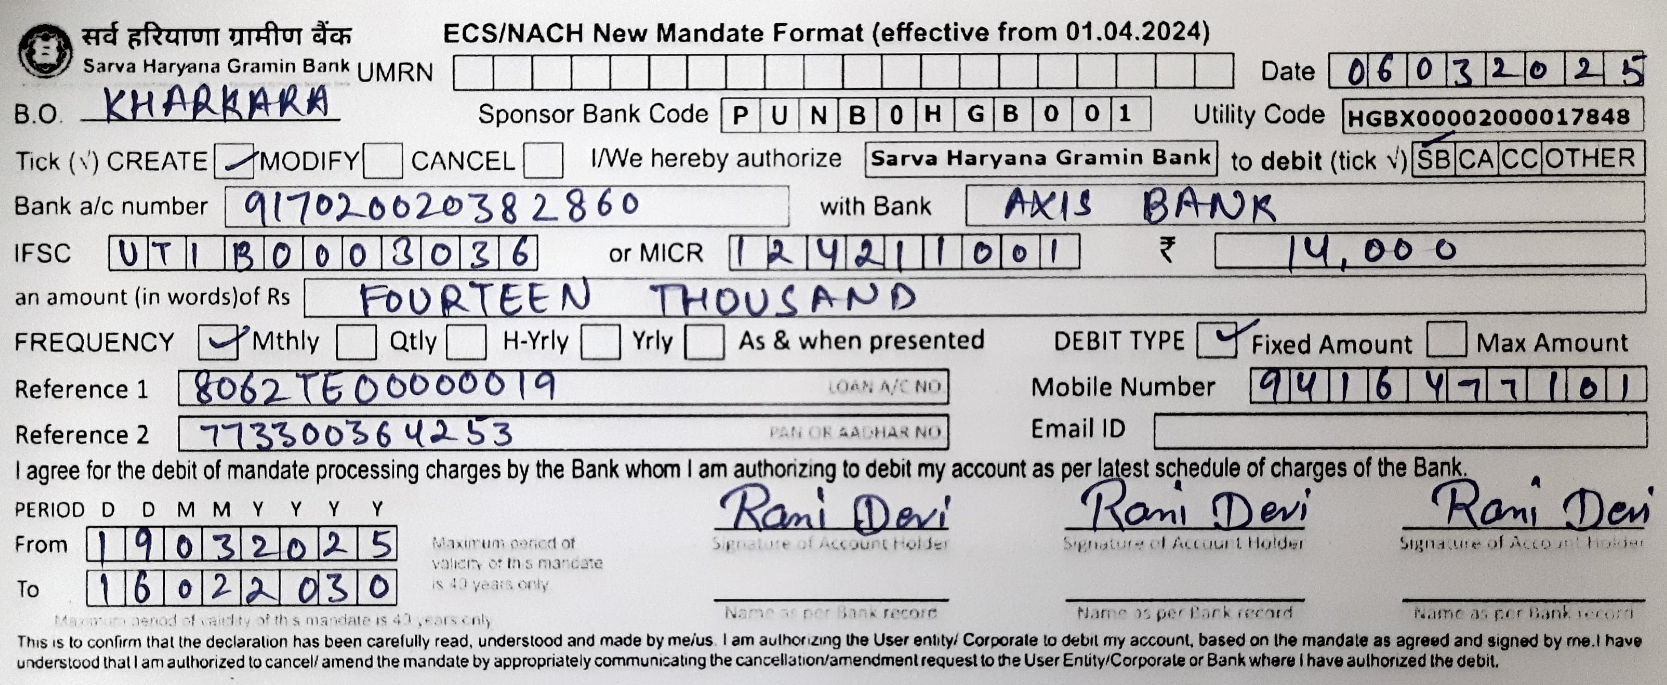 सर्व हरियाणा ग्रामीण बैंक ECS/NACH New Mandate Format (effective from 01.04.2024)
Sarva Haryana Gramin Bank UMRN Date 06032025
B.O. KHARKARA Sponsor Bank Code PUNB0HGB001 Utility Code HGBX00002000017848
Tick (√) CREATE ✓ MODIFY CANCEL I/We hereby authorize Sarva Haryana Gramin Bank to debit (tick √) SB CA CC OTHER
Bank a/c number 917020020382860 with Bank AXIS BANK
IFSC UTIB0003036 or MICR 124211001 ₹ 14,000
an amount (in words)of Rs FOURTEEN THOUSAND
FREQUENCY ✓ Mthly Qtly H-Yrly Yrly As & when presented DEBIT TYPE ✓ Fixed Amount Max Amount
Reference 1 8062TE00000019 LOAN A/C NO Mobile Number 9416477101
Reference 2 773300364253 PAN OR AADHAR NO Email ID
I agree for the debit of mandate processing charges by the Bank whom I am authorizing to debit my account as per latest schedule of charges of the Bank.
PERIOD D D M M Y Y Y Y Rani Devi Rani Devi Rani Devi
From 19032025 Maximum period of validity of this mandate is 40 years only Signature of Account Holder Signature of Account Holder Signature of Account Holder
To 16022030 Name as per Bank record Name as per Bank record Name as per Bank record
Maximum period of validity of this mandate is 40 years only
This is to confirm that the declaration has been carefully read, understood and made by me/us. I am authorizing the User entity/ Corporate to debit my account, based on the mandate as agreed and signed by me.I have
understood that I am authorized to cancel/ amend the mandate by appropriately communicating the cancellation/amendment request to the User Entity/Corporate or Bank where I have authorized the debit.